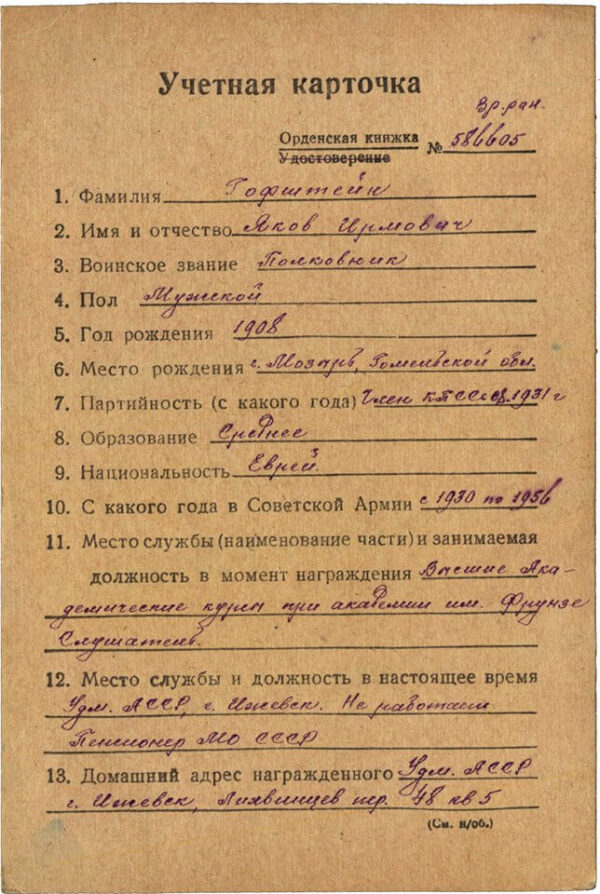 Учетная карточка
Вр. ран.
Орденская книжка
Удостоверение
№ 586605
1. Фамилия Гофштейн
2. Имя и отчество Яков Ирмович
3. Воинское звание Полковник
4. Пол Мужской
5. Год рождения 1908
6. Место рождения г. Мозырь, Гомельской обл.
7. Партийность (с какого года) Член КПСС с 1931 г
8. Образование Среднее
9. Национальность Еврей
10. С какого года в Советской Армии с 1930 по 1956
11. Место службы (наименование части) и занимаемая
должность в момент награждения Высшие Ака-
демические курсы при академии им. Фрунзе
Слушатель.
12. Место службы и должность в настоящее время
Удм. АССР, г. Ижевск. Не работает
Пенсионер МО СССР
13. Домашний адрес награжденного Удм. АССР
г. Ижевск, Лихвинцев пер. 48 кв 5
(См. н/об.)